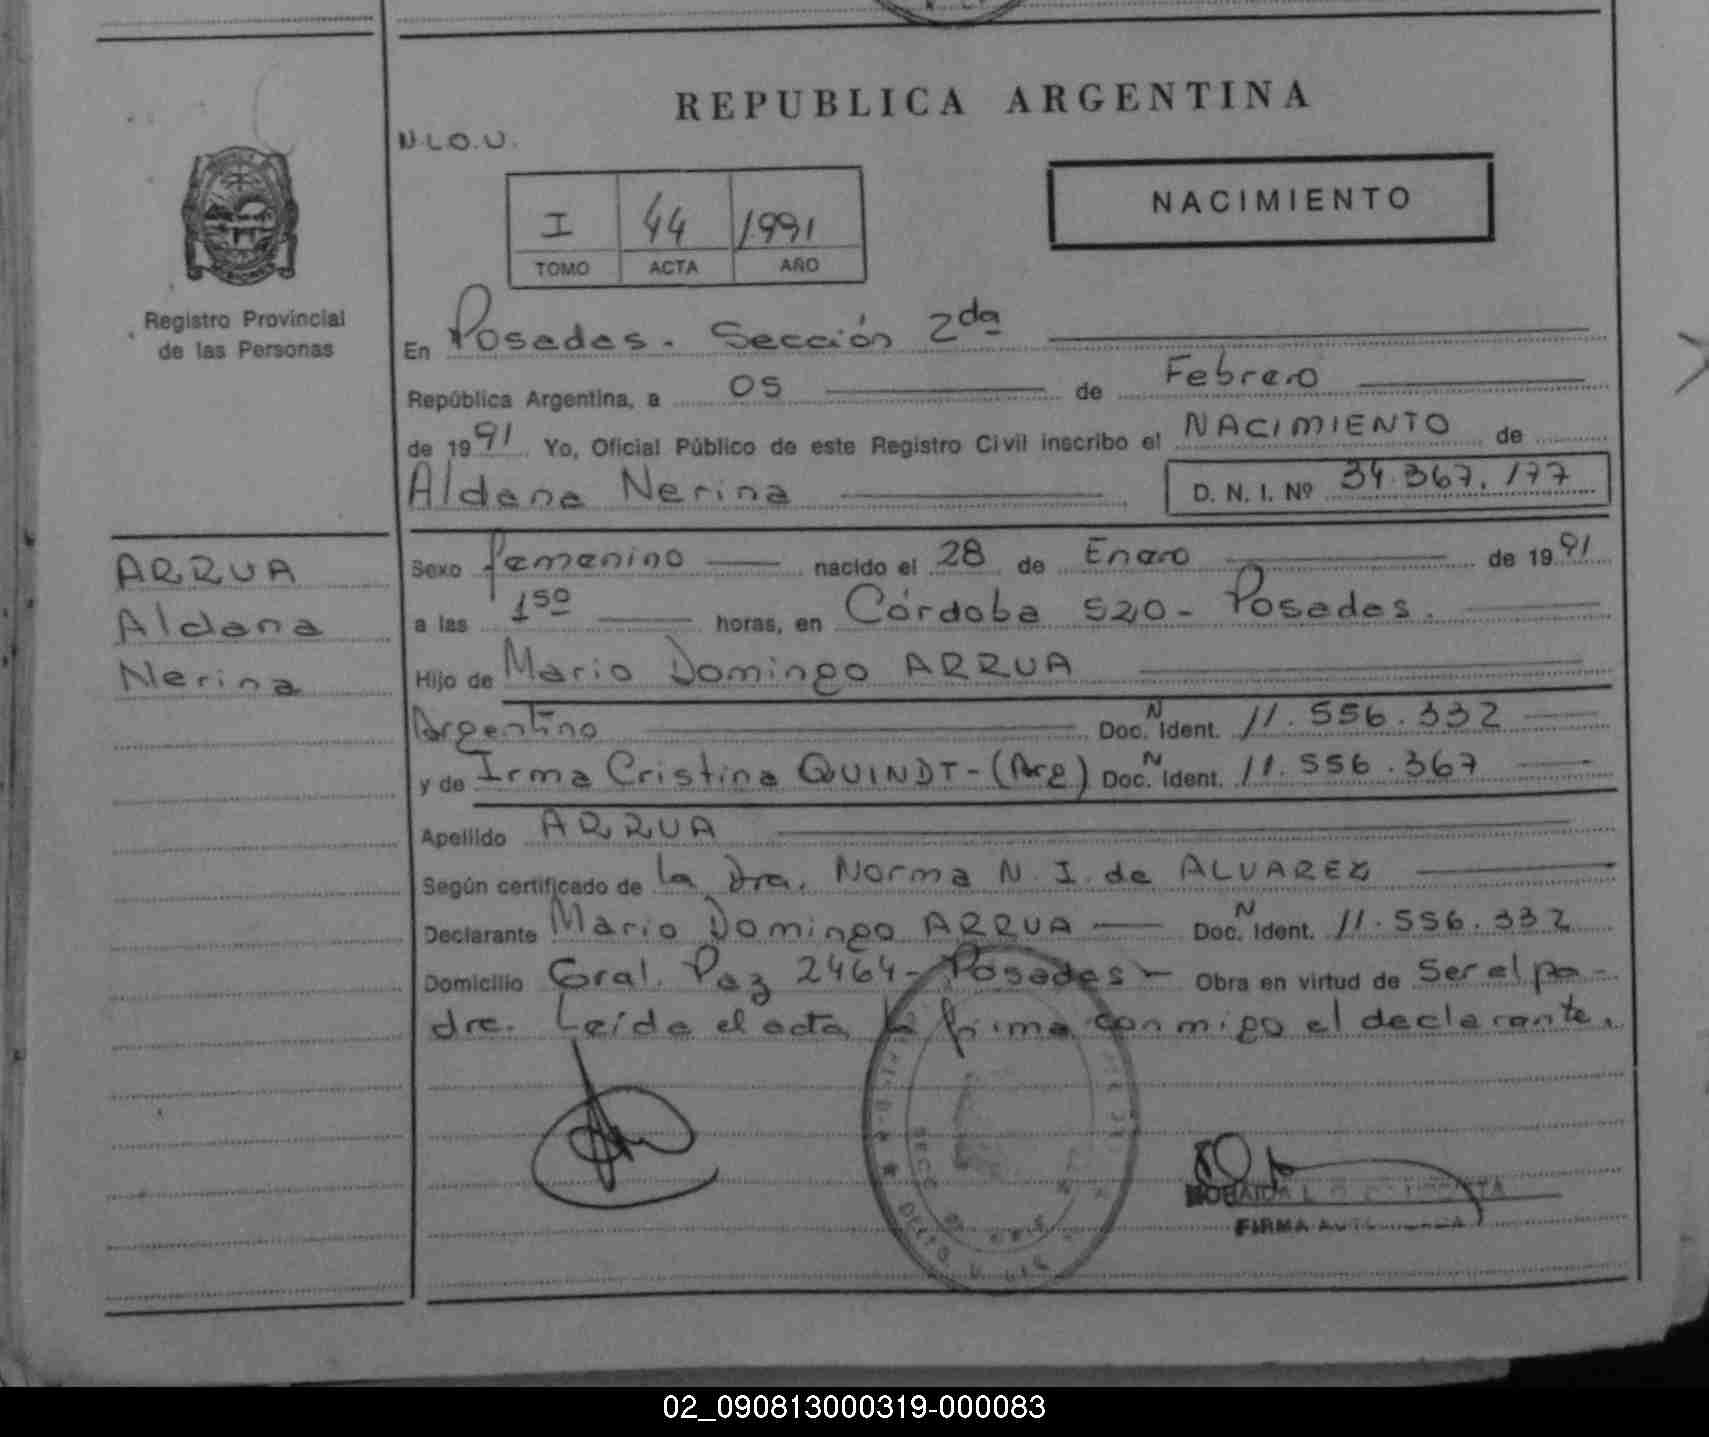 REPUBLICA ARGENTINA
N.L.O.U.
NACIMIENTO
I 44 1991
TOMO ACTA AÑO
Registro Provincial
de las Personas
En Posadas. Sección 2da
República Argentina, a 05 de Febrero
de 1991 Yo, Oficial Público de este Registro Civil inscribo el NACIMIENTO de
Aldana Nerina D. N. I. Nº 34.367.177
ARRUA
Aldana
Nerina
Sexo femenino nacido el 28 de Enero de 1991
a las 150 horas, en Córdoba 520 - Posadas.
Hijo de Mario Domingo ARRUA
Argentino Doc. N Ident. 11.556.332
y de Irma Cristina QUINDT - (Arg) Doc. N Ident. 11.556.367
Apellido ARRUA
Según certificado de la Dra. Norma N. I. de ALVAREZ
Declarante Mario Domingo ARRUA Doc. N Ident. 11.556.332
Domicilio Gral. Paz 2464 - Posadas - Obra en virtud de Ser el pa-
dre. Leída el acta la firma conmigo el declarante.
FIRMA
02_090813000319-000083